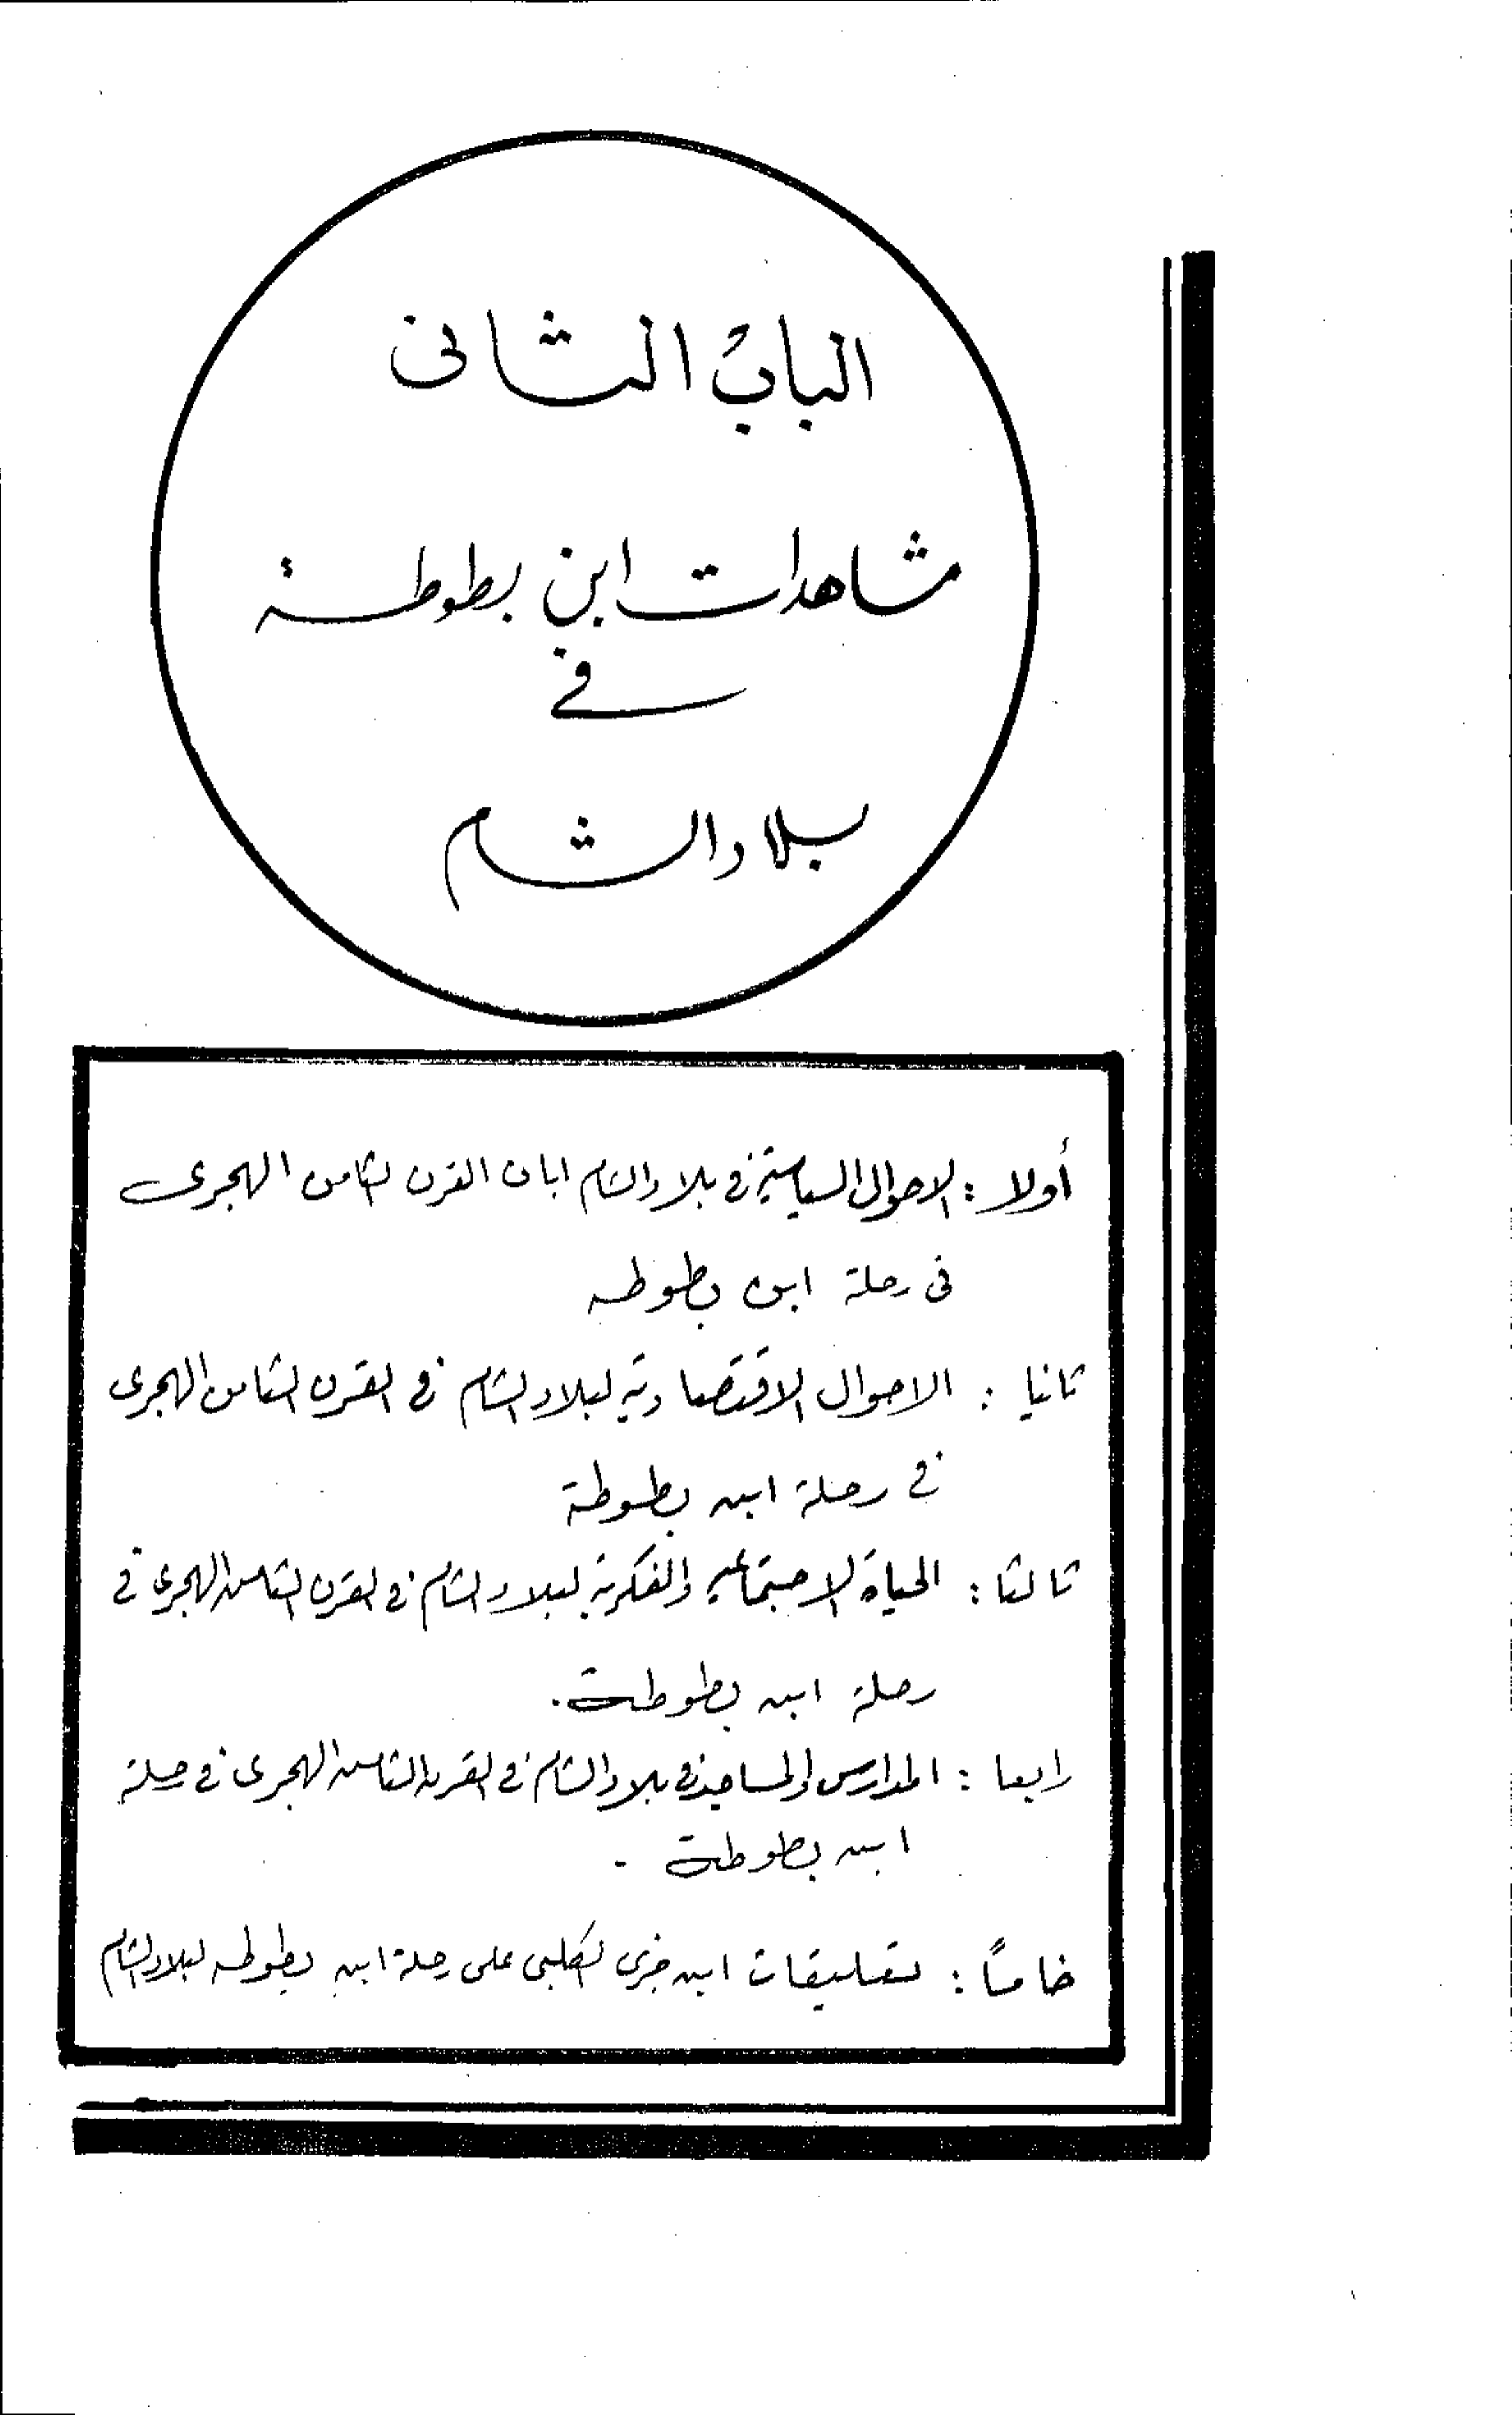 الباب الثانى
مشاهدات ابن بطوطة
فى
بلاد الشام
أولا : الاحوال السياسية فى بلاد الشام ابان القرن الثامن الهجرى
فى رحلة ابن بطوطه
ثانيا : الاحوال الاقتصادية لبلاد الشام فى القرن الثامن الهجرى
فى رحلة ابن بطوطة
ثالثا : الحياة الاجتماعية والفكرية لبلاد الشام فى القرن الثامن الهجرى فى
رحلة ابن بطوطة.
رابعا : المدارس والمساجد فى بلاد الشام فى القرن الثامن الهجرى فى رحلة
ابن بطوطة .
خامساً : تعليقات ابن جزى الكلبى على رحلة ابن بطوطه لبلاد الشام